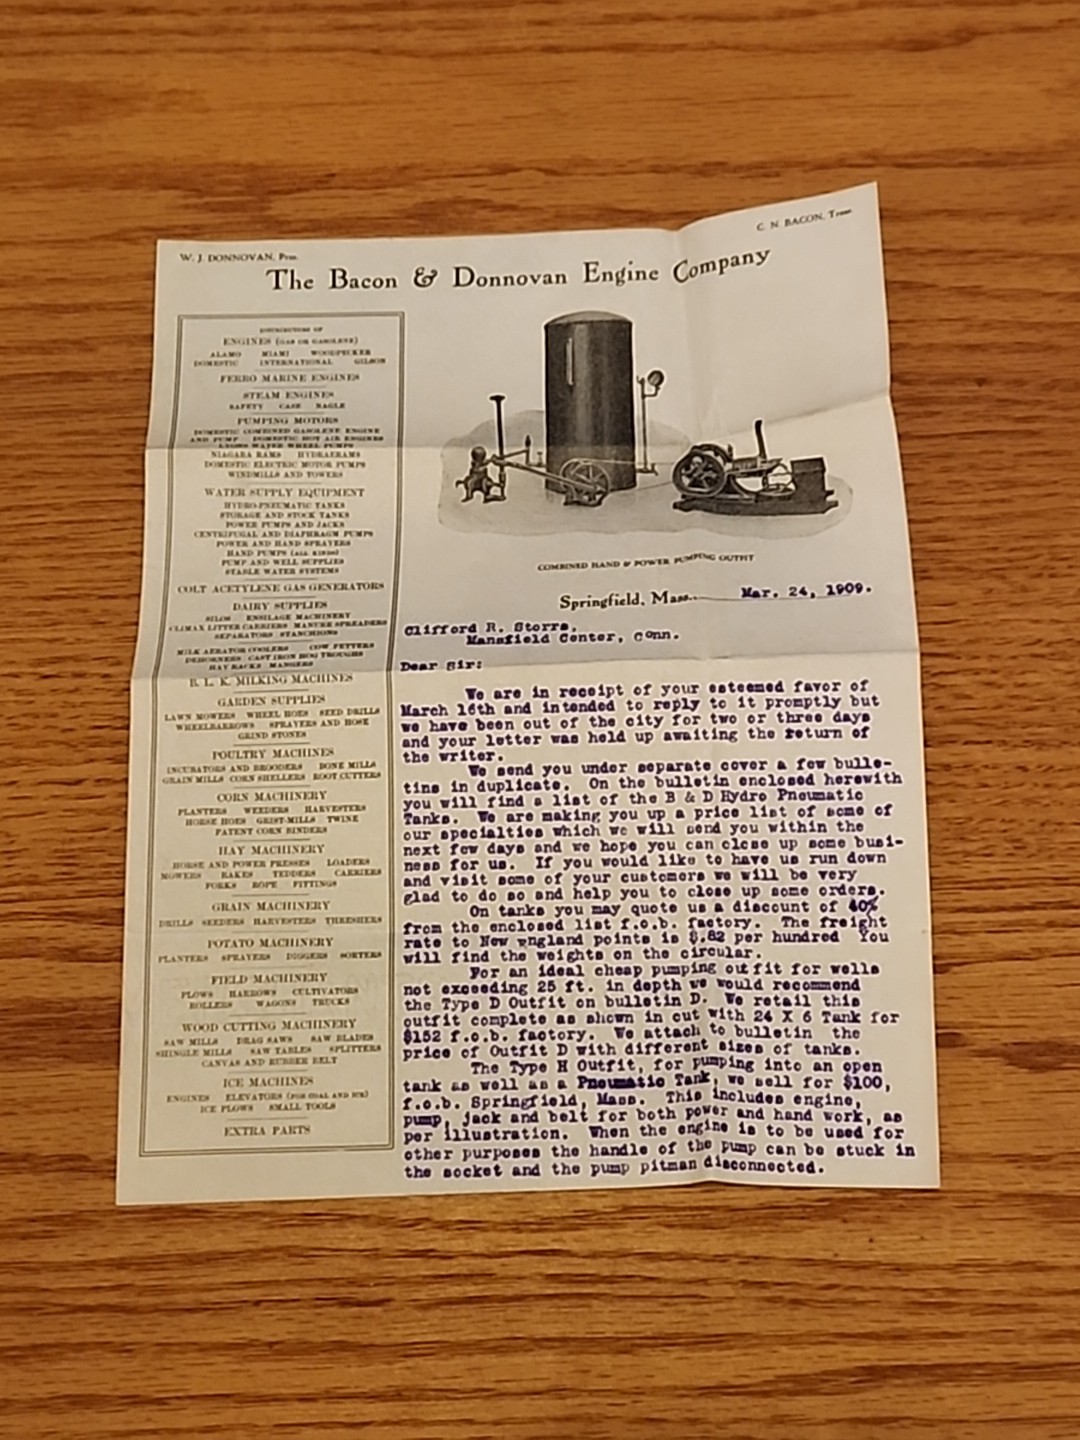 W. J. DONNOVAN, Pres.
C. N. BACON, Treas.
The Bacon & Donnovan Engine Company
DISTRIBUTORS OF
ENGINES (GAS OR GASOLENE)
ALAMO MIAMI WOODPECKER
DOMESTIC INTERNATIONAL GILSON
FERRO MARINE ENGINES
STEAM ENGINES
SAFETY CASE NAGLE
PUMPING MOTORS
DOMESTIC COMBINED GASOLENE ENGINE
AND PUMP DOMESTIC HOT AIR ENGINES
LYONS WATER WHEEL PUMPS
NIAGARA RAMS HYDRAERAMS
DOMESTIC ELECTRIC MOTOR PUMPS
WINDMILLS AND TOWERS
WATER SUPPLY EQUIPMENT
HYDRO-PNEUMATIC TANKS
STORAGE AND STOCK TANKS
POWER PUMPS AND JACKS
CENTRIFUGAL AND DIAPHRAGM PUMPS
POWER AND HAND SPRAYERS
HAND PUMPS (ALL KINDS)
PUMP AND WELL SUPPLIES
STABLE WATER SYSTEMS
COLT ACETYLENE GAS GENERATORS
DAIRY SUPPLIES
SILOS ENSILAGE MACHINERY
CLIMAX LITTER CARRIERS MANURE SPREADERS
SEPARATORS STANCHIONS
MILK AERATOR COOLERS COW FETTERS
DEHORNERS CAST IRON HOG TROUGHS
HAY RACKS MANGERS
B. L. K. MILKING MACHINES
GARDEN SUPPLIES
LAWN MOWERS WHEEL HOES SEED DRILLS
WHEELBARROWS SPRAYERS AND HOSE
GRIND STONES
POULTRY MACHINES
INCUBATORS AND BROODERS BONE MILLS
GRAIN MILLS CORN SHELLERS ROOT CUTTERS
CORN MACHINERY
PLANTERS WEEDERS HARVESTERS
HORSE HOES GRIST-MILLS TWINE
PATENT CORN BINDERS
HAY MACHINERY
HORSE AND POWER PRESSES LOADERS
MOWERS RAKES TEDDERS CARRIERS
FORKS ROPE FITTINGS
GRAIN MACHINERY
DRILLS SEEDERS HARVESTERS THRESHERS
POTATO MACHINERY
PLANTERS SPRAYERS DIGGERS SORTERS
FIELD MACHINERY
PLOWS HARROWS CULTIVATORS
ROLLERS WAGONS TRUCKS
WOOD CUTTING MACHINERY
SAW MILLS DRAG SAWS SAW BLADES
SHINGLE MILLS SAW TABLES SPLITTERS
CANVAS AND RUBBER BELT
ICE MACHINES
ENGINES ELEVATORS (FOR COAL AND ICE)
ICE PLOWS SMALL TOOLS
EXTRA PARTS
COMBINED HAND & POWER PUMPING OUTFIT
Springfield, Mass. Mar. 24, 1909.
Clifford R. Storrs,
Mansfield Center, Conn.
Dear Sir:
We are in receipt of your esteemed favor of
March 16th and intended to reply to it promptly but
we have been out of the city for two or three days
and your letter was held up awaiting the return of
the writer.
We send you under separate cover a few bulle-
tins in duplicate. On the bulletin enclosed herewith
you will find a list of the B & D Hydro Pneumatic
Tanks. We are making you up a price list of some of
our specialties which we will send you within the
next few days and we hope you can close up some busi-
ness for us. If you would like to have us run down
and visit some of your customers we will be very
glad to do so and help you to close up some orders.
On tanks you may quote us a discount of 40%
from the enclosed list f.o.b. factory. The freight
rate to New England points is $.82 per hundred You
will find the weights on the circular.
For an ideal cheap pumping outfit for wells
not exceeding 25 ft. in depth we would recommend
the Type D Outfit on bulletin D. We retail this
outfit complete as shown in cut with 24 X 6 Tank for
$152 f.o.b. factory. We attach to bulletin the
price of Outfit D with different sizes of tanks.
The Type H Outfit, for pumping into an open
tank as well as a Pneumatic Tank, we sell for $100,
f.o.b. Springfield, Mass. This includes engine,
pump, jack and belt for both power and hand work, as
per illustration. When the engine is to be used for
other purposes the handle of the pump can be stuck in
the socket and the pump pitman disconnected.